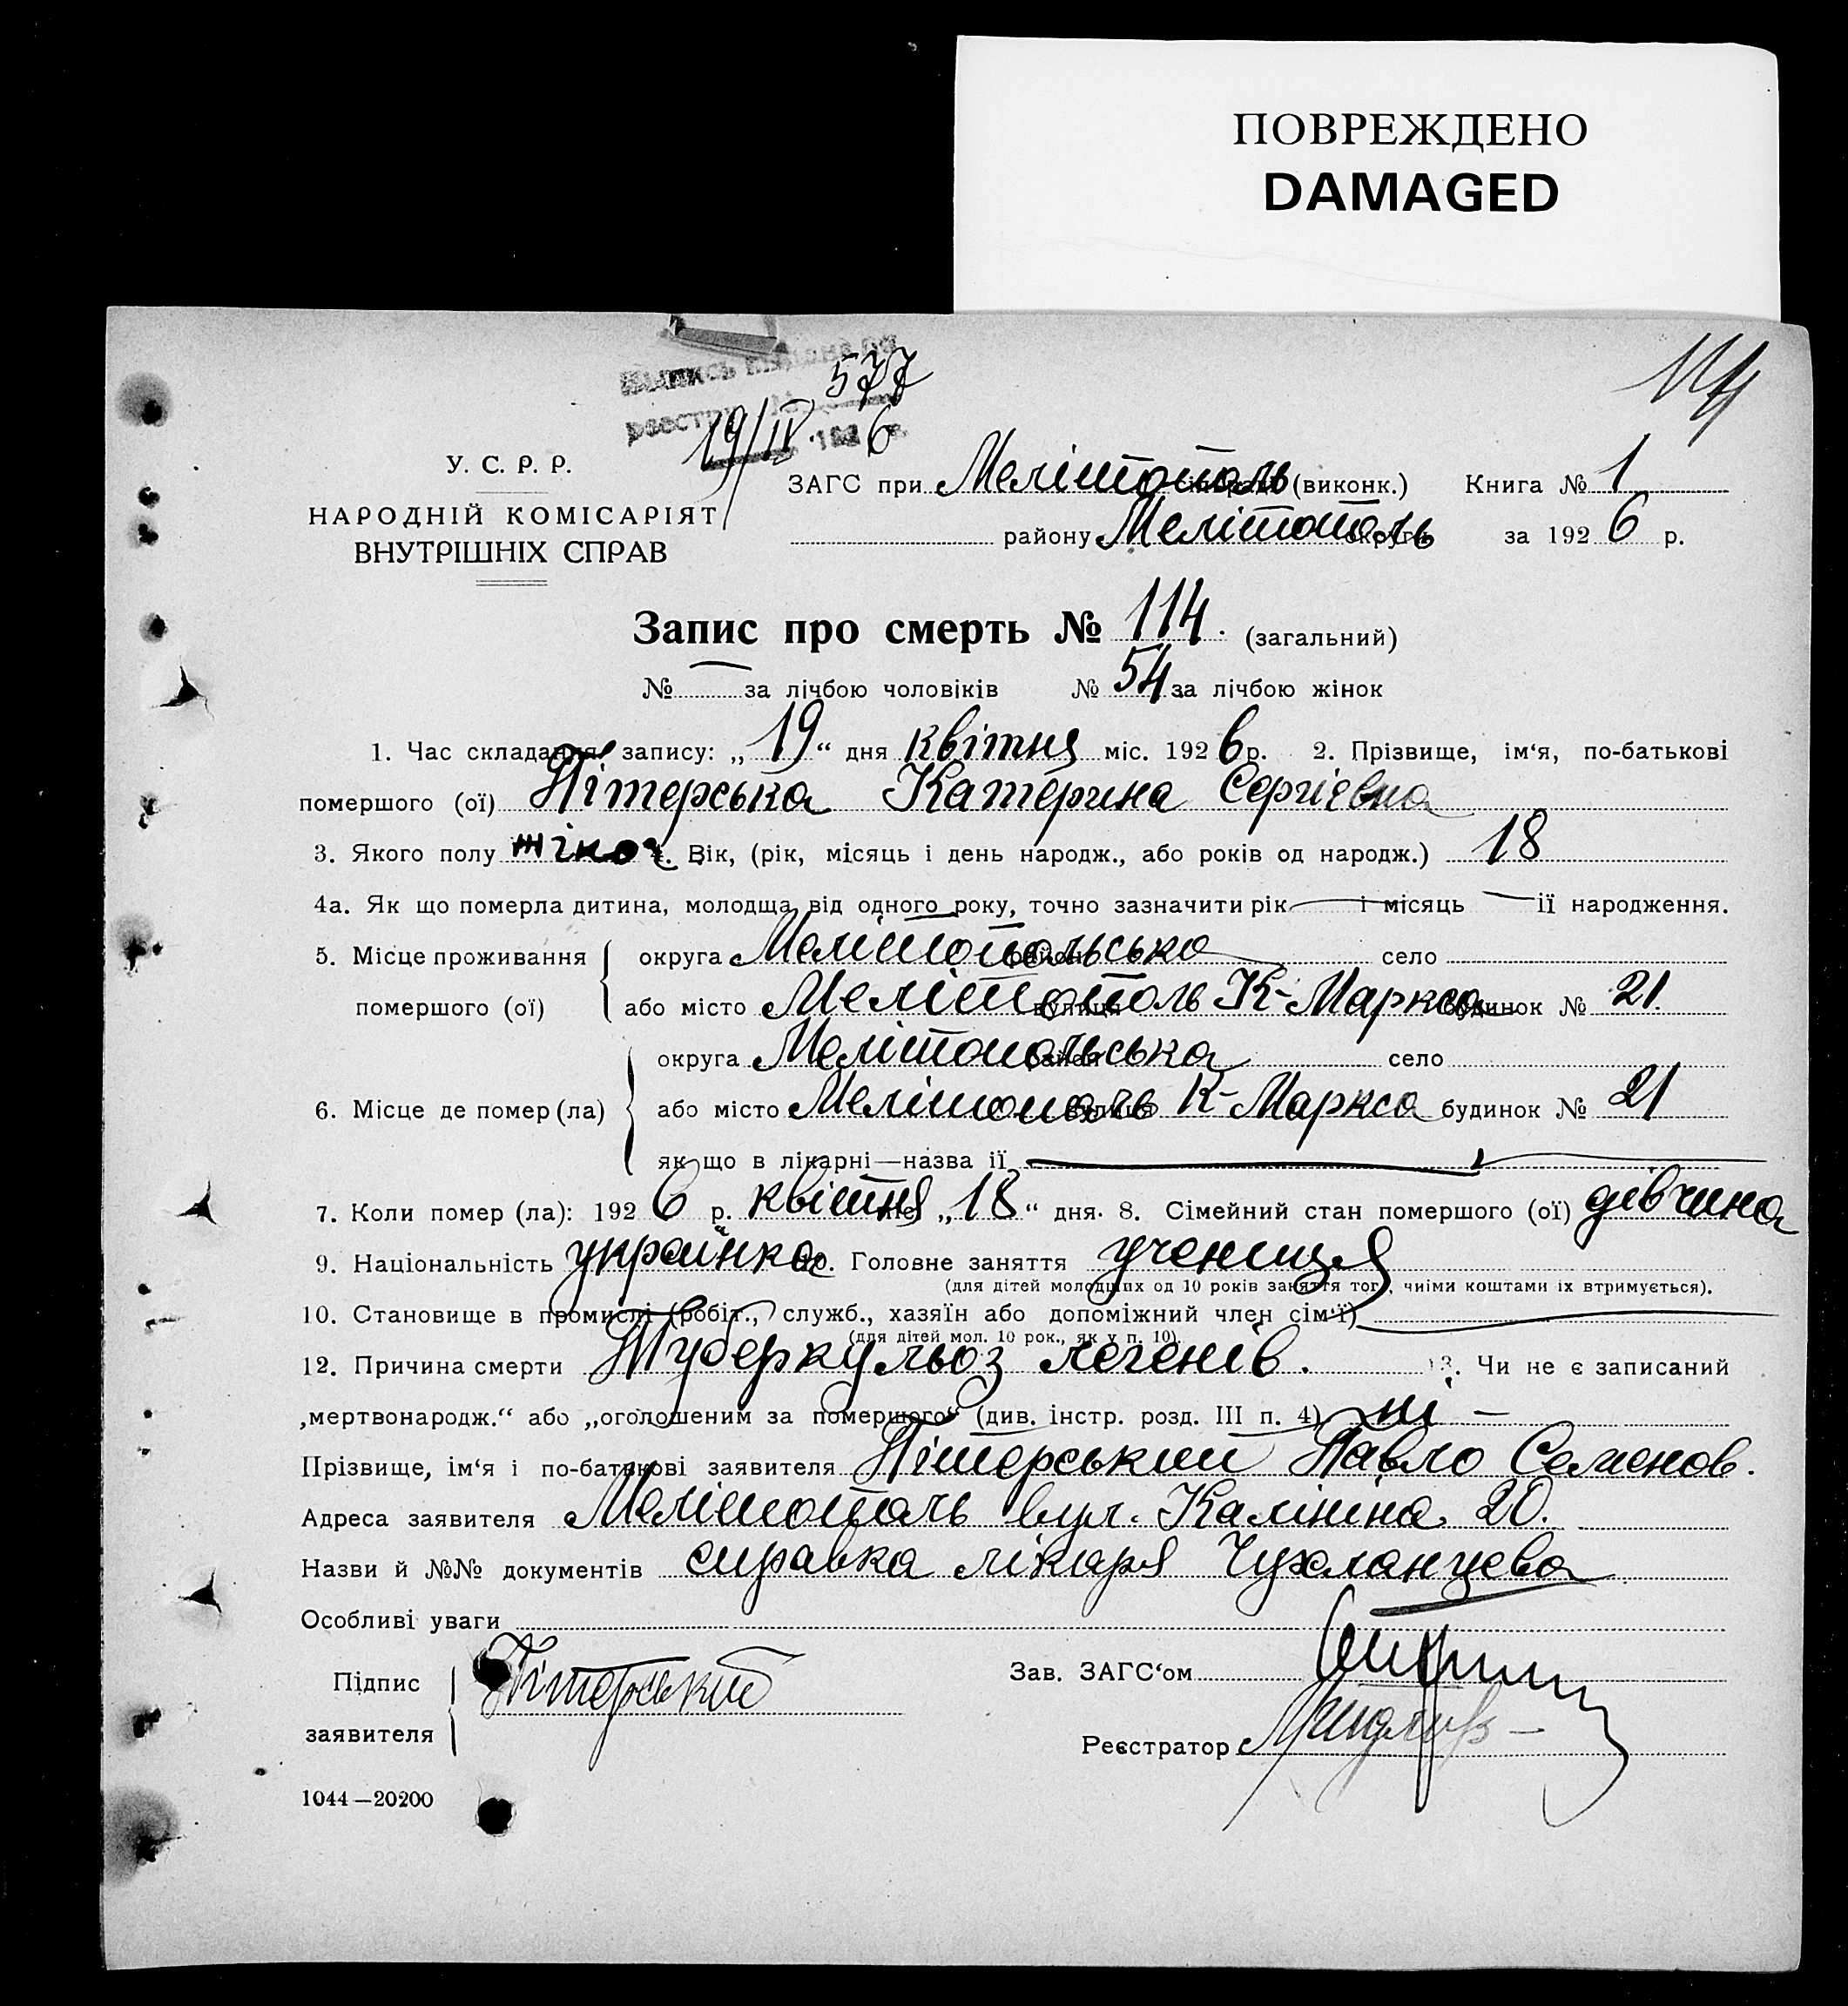 ПОВРЕЖДЕНО
DAMAGED
577
114
19/IV 1926 р.
У. С. Р. Р.
НАРОДНІЙ КОМІСАРІЯТ
ВНУТРІШНІХ СПРАВ
ЗАГС при Мелітополь (виконк.) Книга № 1
району Мелітополь округи за 1926 р.
Запис про смерть № 114. (загальний)
№ — за лічбою чоловіків № 54 за лічбою жінок
1. Час складання запису: „19“ дня квітня міс. 1926 р. 2. Прізвище, ім‘я, по-батькові
помершого (ої) Пітерська Катерина Сергієвна
3. Якого полу жіноч. Вік, (рік, місяць і день народж., або років од народж.) 18
4а. Як що померла дитина, молодща від одного року, точно зазначити рік — і місяць — її народження.
5. Місце проживання округа Мелітопольська район село
помершого (ої) або місто Мелітополь вулиця К-Маркса будинок № 21.
округа Мелітопольська район село
6. Місце де помер (ла) або місто Мелітополь вулиця К-Маркса будинок № 21
як що в лікарні—назва її —
7. Коли помер (ла): 1926 р. квітня „18“ дня. 8. Сімейний стан помершого (ої) дівчина
9. Національність українка 10. Головне заняття учениця
(для дітей молодших од 10 років заняття того, чиїми коштами їх втримується).
10. Становище в промислі (робіт., служб., хазяїн або допоміжний член сім‘ї) —
(для дітей мол. 10 рок., як у п. 10).
12. Причина смерти Туберкульоз легенів. 13. Чи не є записаний
„мертвонародж.“ або „оголошеним за помершого“ (див. інстр. розд. III п. 4) ні —
Прізвище, ім‘я і по-батькові заявителя Пітерський Павло Семенов.
Адреса заявителя Мелітополь вул. Калініна 20.
Назви й №№ документів справка лікаря Чухланцева
Особливі уваги
Підпис заявителя Пітерський
Зав. ЗАГС‘ом
Реєстратор
1044—20200